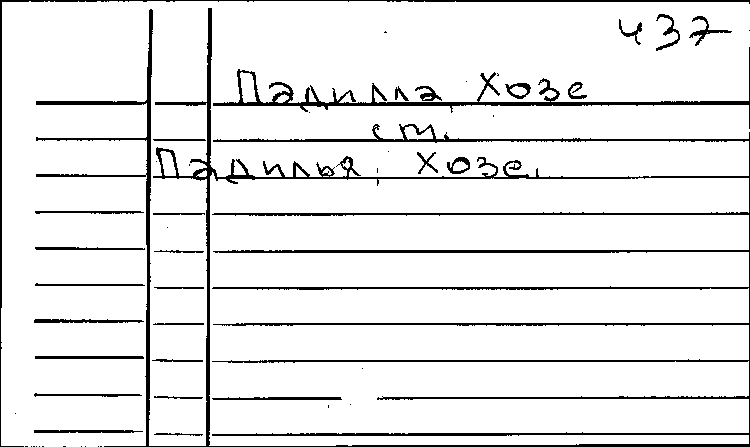 437
Падилла, Хозе
ст.
Падилья, Хозе.